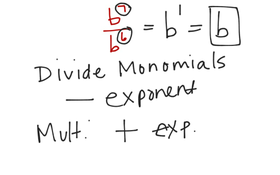 b⁷/b⁶ = b¹ = b
Divide Monomials
— exponent
Multi. + exp.